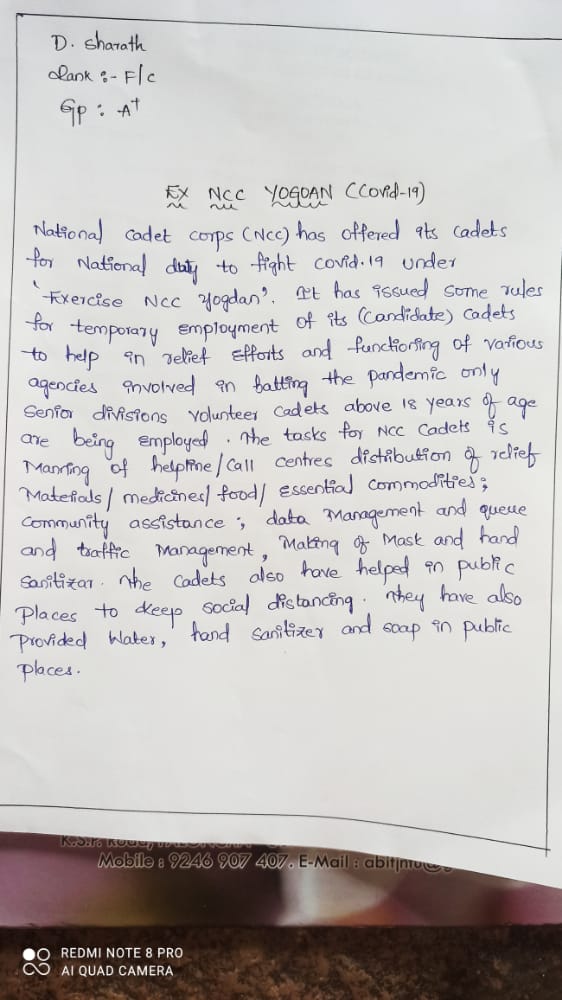 D. Sharath
Rank :- F/c
Gp : A+
EX NCC YOGDAN (Covid-19)
National cadet corps (NCC) has offered its cadets
for National duty to fight covid.19 under
'Exercise NCC Yogdan'. It has issued some rules
for temporary employment of its (candidate) cadets
to help in relief efforts and functioning of various
agencies involved in batting the pandemic only
Senior divisions volunteer cadets above 18 years of age
are being employed. The tasks for NCC Cadets is
Manning of helpline/call centres distribution of relief
Materials/medicines/food/essential commodities;
Community assistance; data Management and queue
and traffic Management, Making of Mask and hand
Sanitizar. The cadets also have helped in public
Places to keep social distancing. They have also
Provided Water, hand sanitizer and soap in public
places.
Mobile : 9246 907 407. E-Mail :
REDMI NOTE 8 PRO
AI QUAD CAMERA